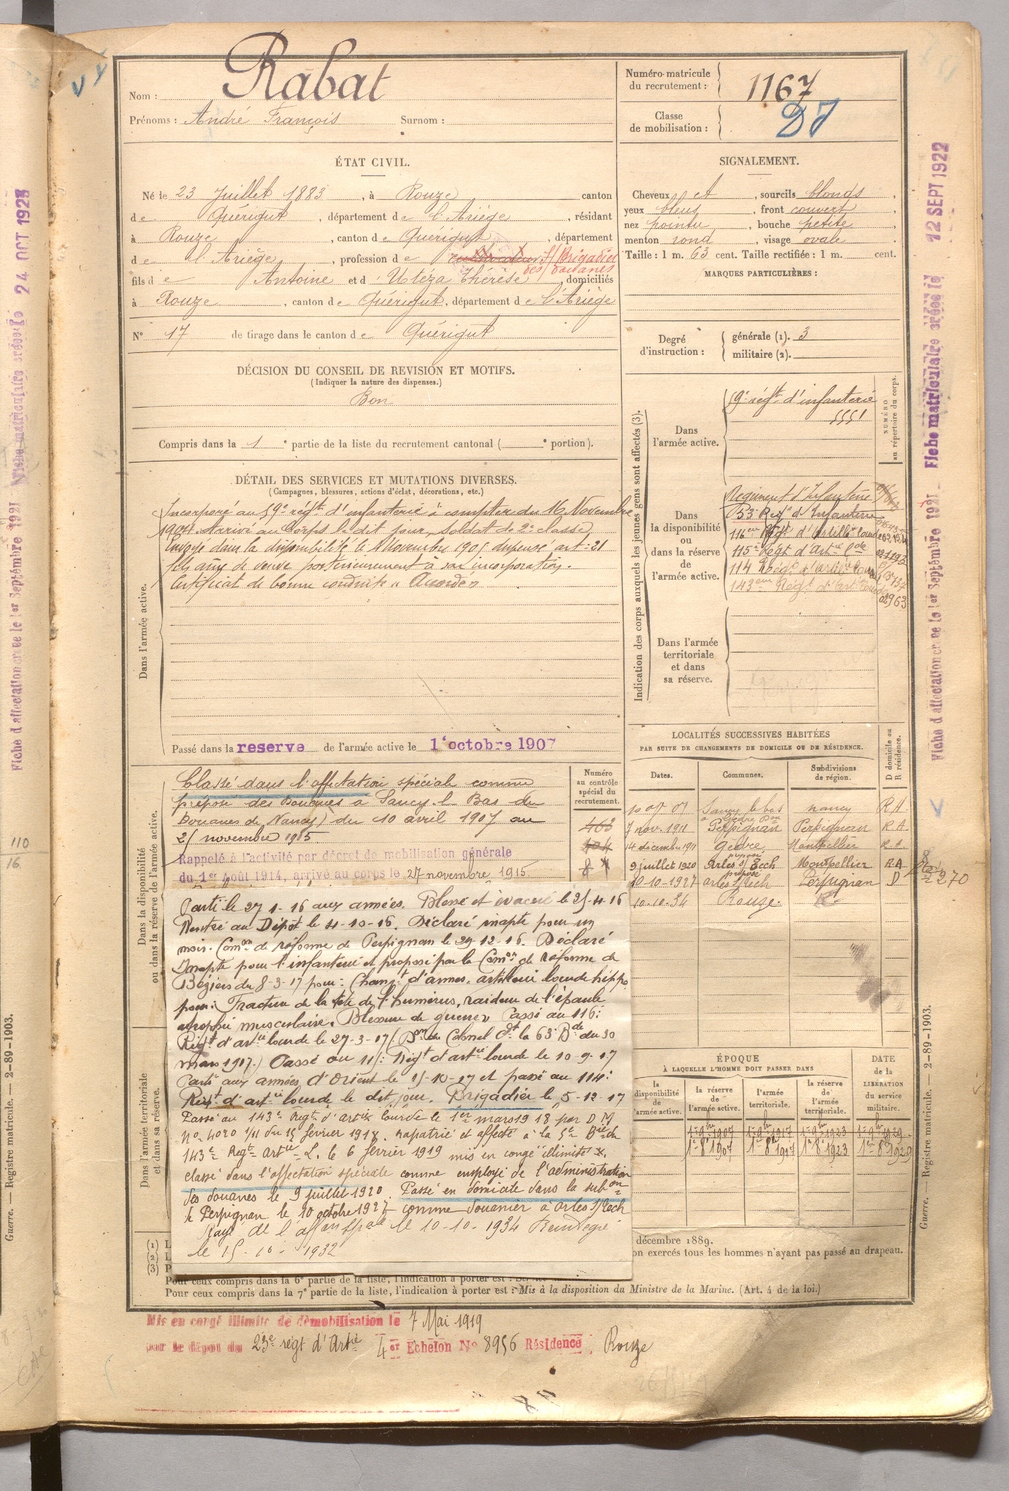 Nom : Rabat
Prénoms : André François Surnom :
Numéro-matricule du recrutement : 1167
Classe de mobilisation :
ÉTAT CIVIL.
Né le 23 Juillet 1883, à Rouze canton
de Quérigut, département de l'Ariège, résidant
à Rouze, canton de Quérigut, département
de l'Ariège, profession de Brigadier
des douanes
fils de Antoine et d' Utéza Thérèse, domiciliés
à Rouze, canton de Quérigut, département de l'Ariège
N° 17 de tirage dans le canton de Quérigut
SIGNALEMENT.
Cheveux et, sourcils blonds
yeux bleus, front couvert
nez pointu, bouche petite
menton rond, visage ovale
Taille : 1 m. 63 cent. Taille rectifiée : 1 m. cent.
MARQUES PARTICULIÈRES :
Degré d'instruction : générale (1). 3
militaire (2).
DÉCISION DU CONSEIL DE REVISION ET MOTIFS.
(Indiquer la nature des dispenses.)
Bon
Compris dans la 1e partie de la liste du recrutement cantonal ( e portion).
DÉTAIL DES SERVICES ET MUTATIONS DIVERSES.
(Campagnes, blessures, actions d'éclat, décorations, etc.)
Dans l'armée active.
Incorporé au 59e régt d'infanterie à compter du 16 Novembre
1904. Arrivé au Corps le dit jour, soldat de 2e classe.
Envoyé dans la disponibilité le novembre 1905 dispensé art. 21
postérieurement à son incorporation.
Certificat de bonne conduite "Accordé"
Passé dans la reserve de l'armée active le 1er octobre 1907
Indication des corps auxquels les jeunes gens sont affectés (3).
NUMÉRO au répertoire du corps.
Dans l'armée active.
9e régt d'infanterie
5551
Dans la disponibilité ou dans la réserve de l'armée active.
Régiment d'Infanterie
53e Régt d'Infanterie
116e Régt d'Artillie Lourde
115e Régt d'Artie Lde
114 Régt d'Artie Lourde
143eme Régt d'Artie Lourde
Dans l'armée territoriale et dans sa réserve.
Dans la disponibilité ou dans la réserve de l'armée active.
Numéro au contrôle spécial du recrutement.
Classé dans l'affectation spéciale comme
préposé des Douanes à Sancy-le-Bas (des
Douanes de Nancy) du 10 avril 1907 au
25 novembre 1915.
Rappelé à l'activité par décret de mobilisation générale
du 1er Août 1914, arrivé au corps le 27 novembre 1915
Parti le 27-1-16 aux armées. Blessé et évacué le 25-4-16
Rentré au Dépôt le 4-10-16. Déclaré inapte pour un
mois. Comon de réforme de Perpignan le 29-12-16. Déclaré
Inapte pour l'infanterie et proposé par la Comon de réforme de
Béziers du 8-3-17 pour : Changt d'armes, artillerie lourde hippo
pour : Fracture de la tête de l'humérus, raideur de l'épaule
atrophie musculaire. Blessure de guerre. Passé au 116e
Régt d'artie lourde le 27-3-17 (
mars 1917.) Passé au 115e Régt d'artie lourde le 10-9-17
Parti aux armées d'Orient le 15-10-17 et passé au 114e
Régt d'artie lourde le dit jour. Brigadier le 5-12-17
Passé au 143e Régt d'artie lourde le 1er mars 1918 par D.M
No 4020 1/11 du 15 février 1918. rapatrié et affecté à la 5e Btrie
143e Régt artie L. le 6 février 1919 mis en congé illimité
classé dans l'affectation spéciale comme employé de l'administration
des douanes le 9 juillet 1920. Passé en domicile dans la subon
de Perpignan le 10 octobre 1927 comme douanier à Arles s/Tech
Rayé de l'affon spale le 10-10-1934 Réintégré
le 15-10-1932
LOCALITÉS SUCCESSIVES HABITÉES
PAR SUITE DE CHANGEMENTS DE DOMICILE OU DE RÉSIDENCE.
Dates. Communes. Subdivisions de région. D domicile ou R résidence.
Sancy le bas Nancy R.A.
7 nov. 1911 Perpignan Perpignan R.A.
14 décemb. 1911 Montpellier
9 juillet 1920 Arles s/Tech Montpellier R.A
10-10-1927 Arles s/Tech Perpignan D
10-10-34 Rouze
ÉPOQUE
À LAQUELLE L'HOMME DOIT PASSER DANS
la disponibilité de l'armée active. la réserve de l'armée active. l'armée territoriale. la réserve de l'armée territoriale. DATE DE LA LIBÉRATION du service militaire.
Dans l'armée territoriale et dans sa réserve.
décembre 1889.
on exercés tous les hommes n'ayant pas passé au drapeau.
Pour ceux compris dans la 6e partie de la liste, l'indication à porter est :
Pour ceux compris dans la 7e partie de la liste, l'indication à porter est : Mis à la disposition du Ministre de la Marine. (Art. 4 de la loi.)
Mis en congé illimité de démobilisation le 7 Mai 1919
par le dépot du 23e régt d'Artie 4er Echelon No 8956 Résidence Rouze
Guerre. — Registre matricule. — 2-89-1903.
Guerre. — Registre matricule. — 2-89-1903.
Fiche d'affectation créée le 1er Septembre 1921 Fiche matriculaire créée le 24 OCT 1923
Fiche d'affectation créée le 1er Septembre 1921 Fiche matriculaire créée le 12 SEPT 1922
110
16
270